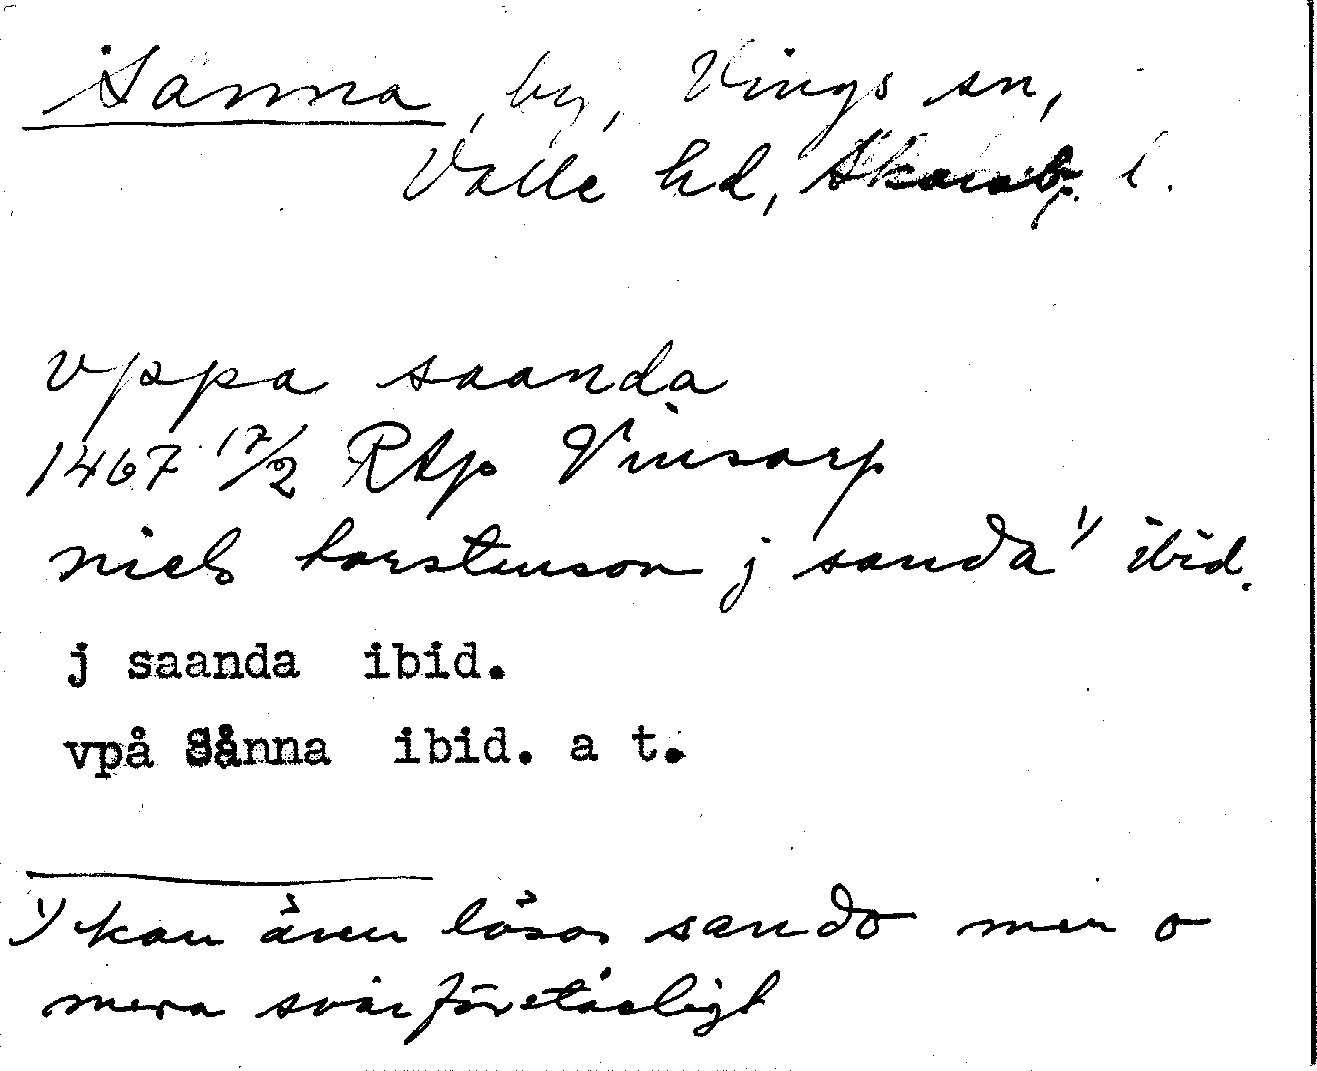 Sanna, by, Vings sn,
Valle hd, Skarab. l.
vppa saanda
1467 17/2 Rtp Vinsarp
niels torstenson j sanda 1/ ibid.
j saanda ibid.
vpå Sånna ibid. a t.
1/ kan även läsas sando men o
mera svårföretåeligt